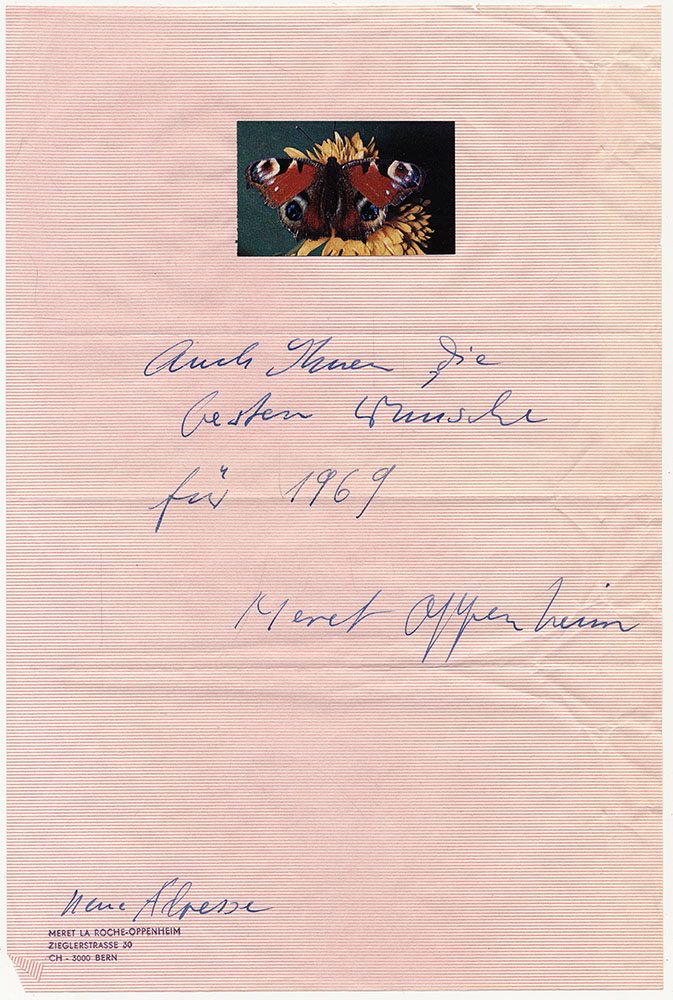 Auch Ihnen die
besten Wünsche
für 1969
Meret Oppenheim
neue Adresse
MERET LA ROCHE-OPPENHEIM
ZIEGLERSTRASSE 30
CH - 3000 BERN